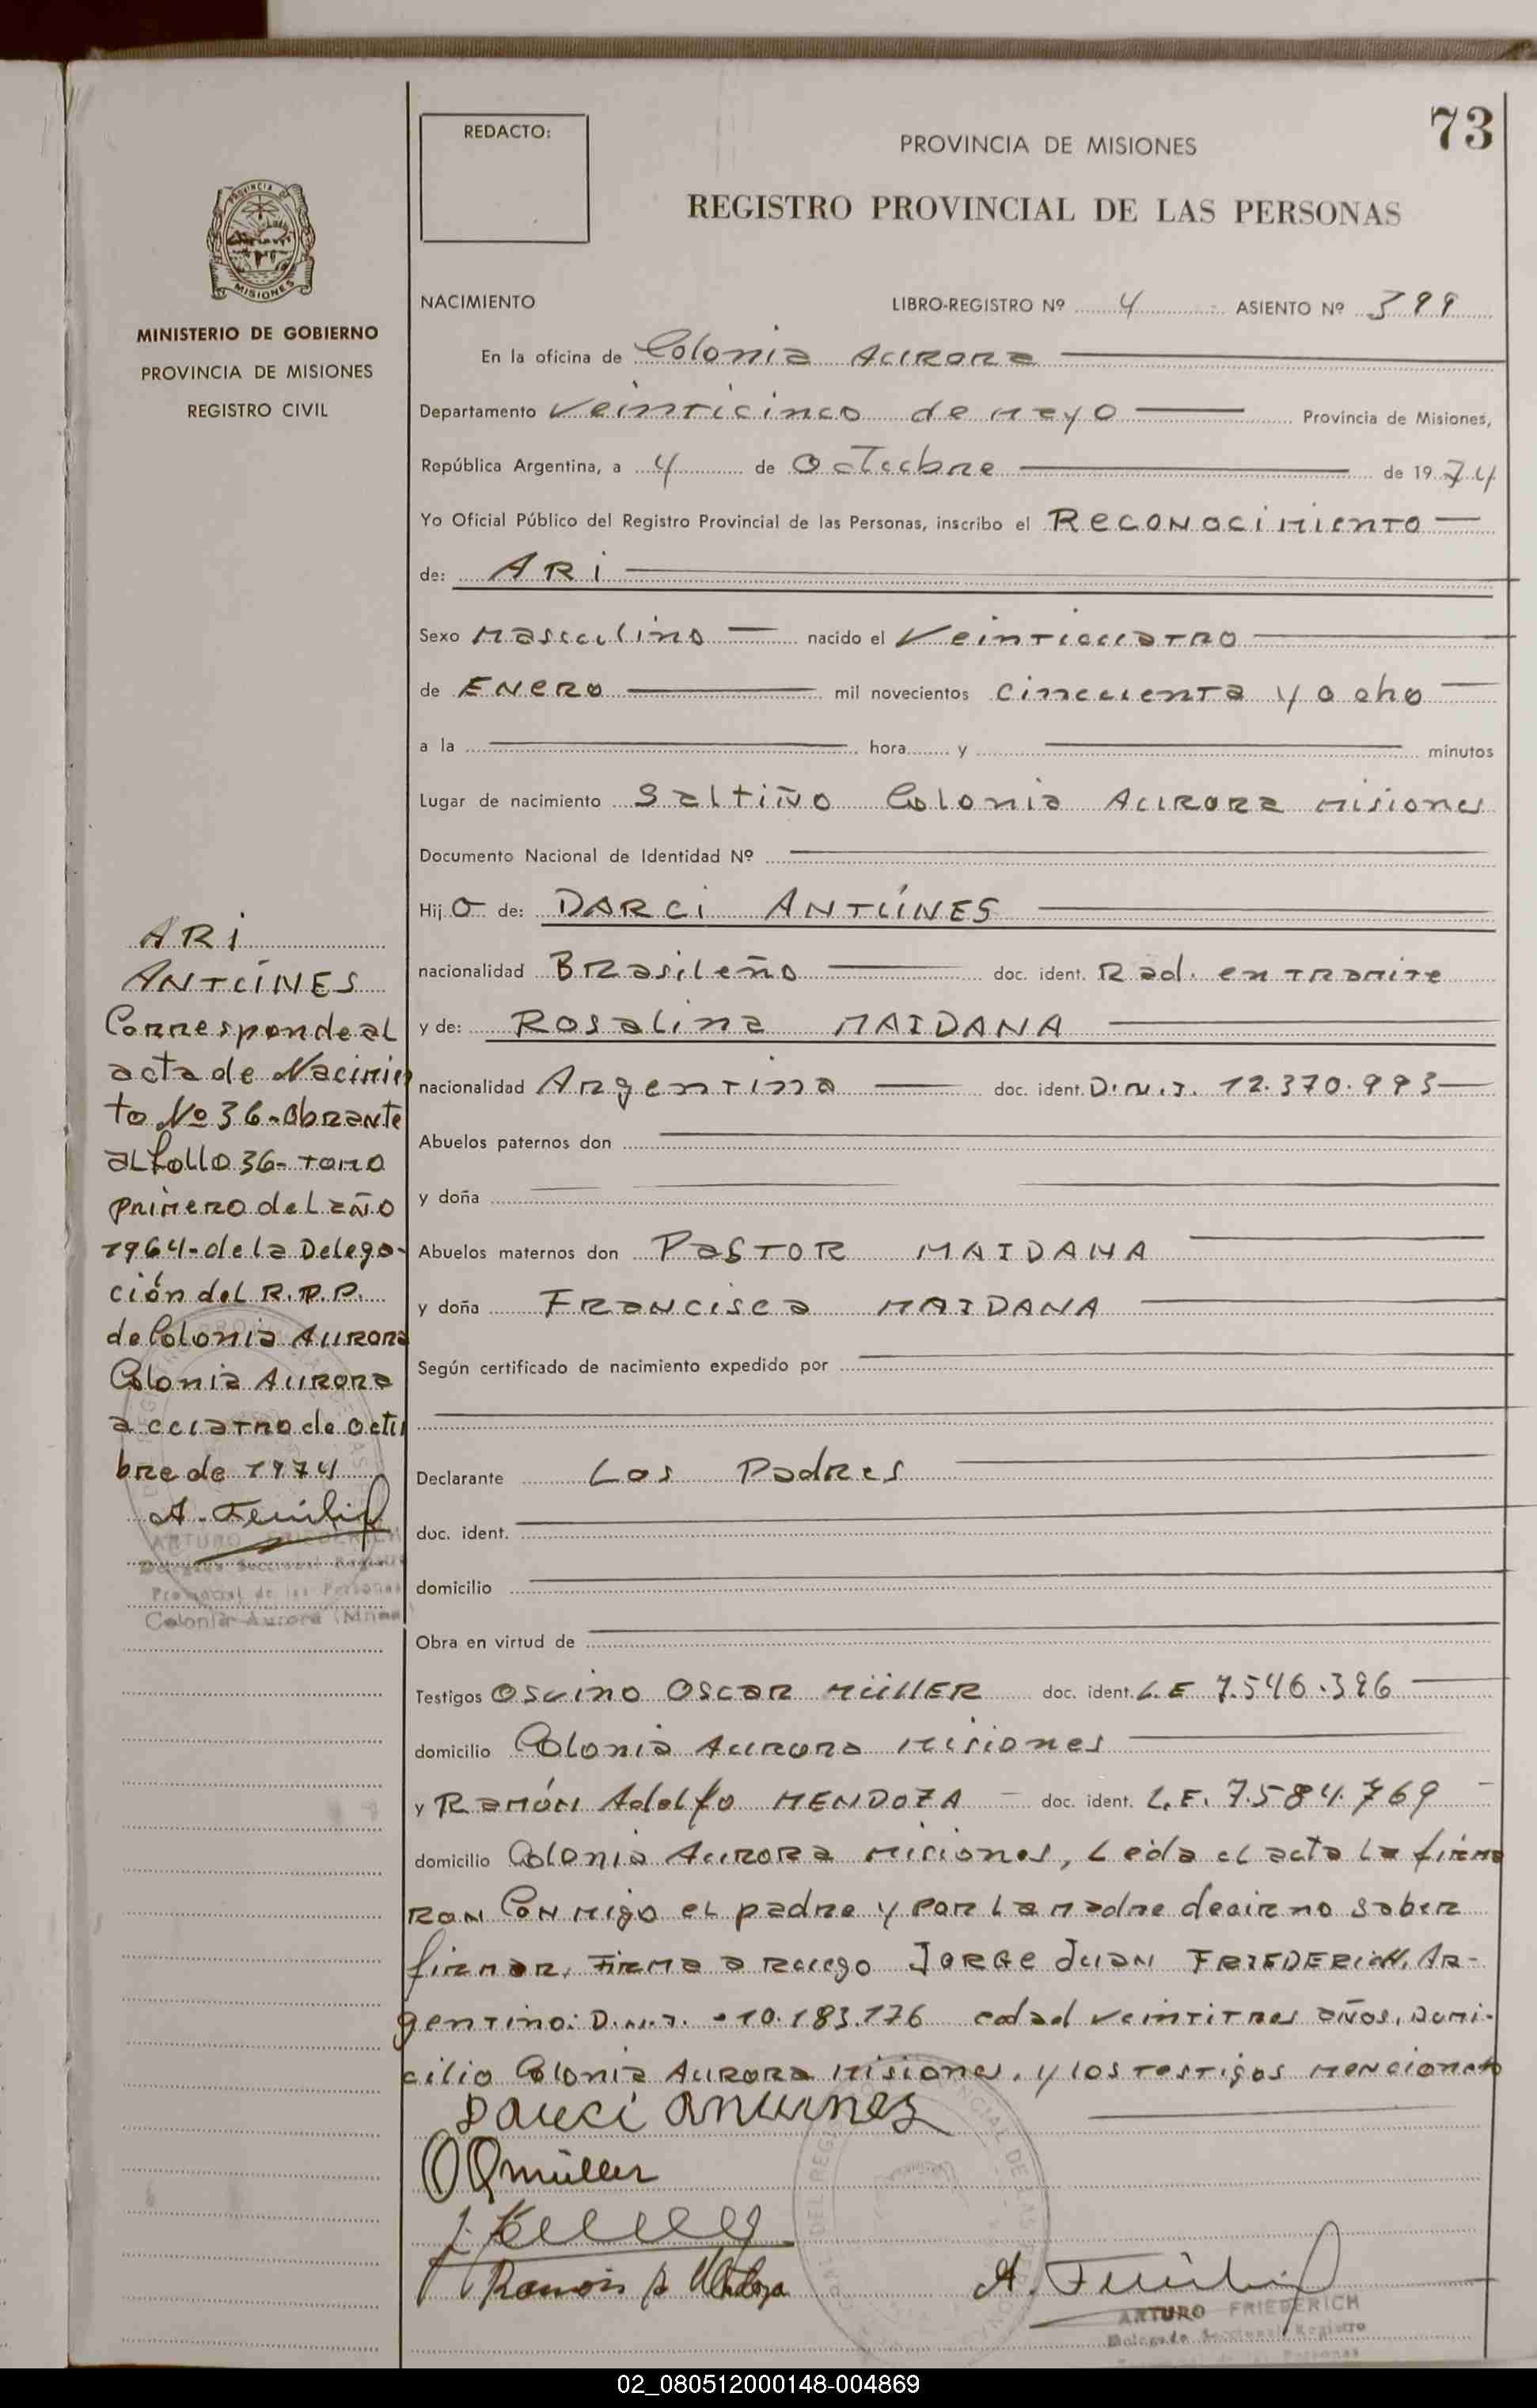 73
REDACTO:
PROVINCIA DE MISIONES
REGISTRO PROVINCIAL DE LAS PERSONAS
PROVINCIA DE
MISIONES
MINISTERIO DE GOBIERNO
PROVINCIA DE MISIONES
REGISTRO CIVIL
NACIMIENTO LIBRO-REGISTRO Nº 4 ASIENTO Nº 399
En la oficina de Colonia Aurora
Departamento Veinticinco de Mayo Provincia de Misiones,
República Argentina, a 4 de Octubre de 1974
Yo Oficial Público del Registro Provincial de las Personas, inscribo el Reconocimiento
de: ARI
Sexo Masculino nacido el Veinticuatro
de Enero mil novecientos cincuenta y ocho
a la hora y minutos
Lugar de nacimiento Saltiño Colonia Aurora Misiones
Documento Nacional de Identidad Nº
Hijo de: DARCI ANTÚNES
nacionalidad Brasileño doc. ident. Rad. en tramite
y de: Rosalina MAIDANA
nacionalidad Argentina doc. ident. D.N.I. 12.370.993
Abuelos paternos don
y doña
Abuelos maternos don Pastor MAIDANA
y doña Francisca MAIDANA
Según certificado de nacimiento expedido por
Declarante Los Padres
doc. ident.
domicilio
Obra en virtud de
Testigos Osvino Oscar MÜLLER doc. ident. L.E 7.546.396
domicilio Colonia Aurora Misiones
y Ramón Adolfo MENDOZA doc. ident. L.E. 7.584.769
domicilio Colonia Aurora Misiones, Leida el acta la firma
ron Conmigo el padre y por la madre decir no saber
firmar, Firma a ruego Jorge Juan FRIEDERICH, Ar-
gentino: D.N.I. 10.183.176 edad veintitres años, Domi-
cilio Colonia Aurora Misiones, y los testigos mencionado
Darci Antunes
OOmüller
Ramón A Mendoza
ARTURO FRIEDERICH
Delegado Seccional Registro
ARI
ANTÚNES
Corresponde al
acta de Nacimien
to Nº 36-Obrante
al follo 36- tomo
primero del año
1964- de la Delega-
ción del R.P.P.
de Colonia Aurora
Colonia Aurora
a cuatro de Octu
bre de 1974
ARTURO FRIEDERICH
Delegado Seccional Registro
Provincial de las Personas
Colonia Aurora (Mnes)
02_080512000148-004869